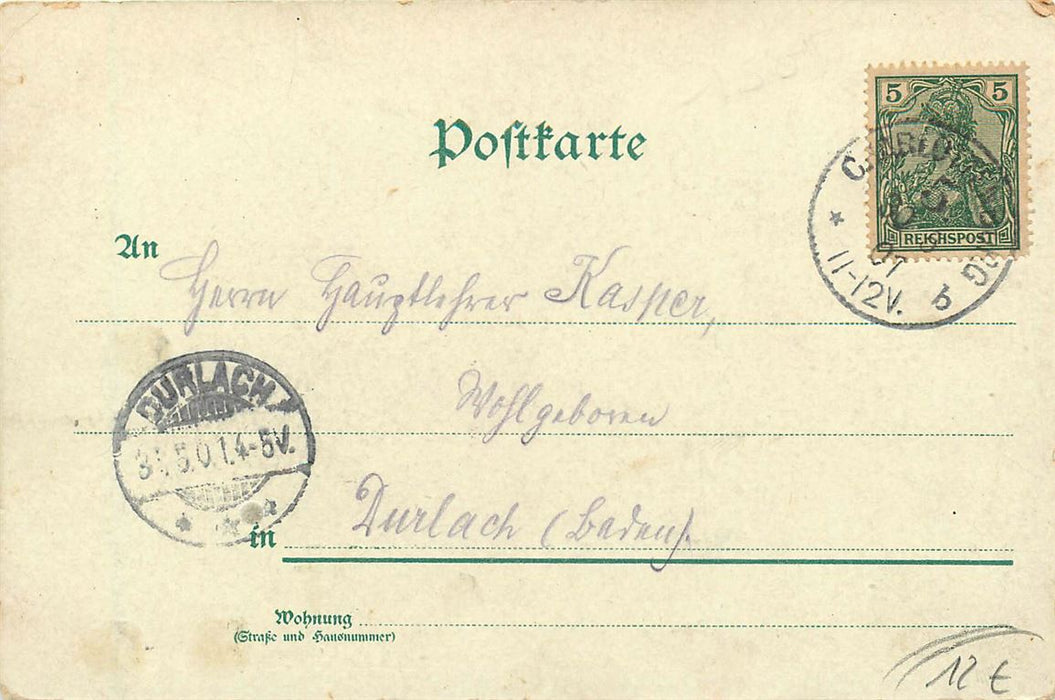 5 5
REICHSPOST
11-12V.
b
Postkarte
An
Herrn Hauptlehrer Kasper,
Wohlgeboren
DURLACH
31.5.01.4-5V.
in Durlach (Baden).
Wohnung
(Straße und Hausnummer)
12 €